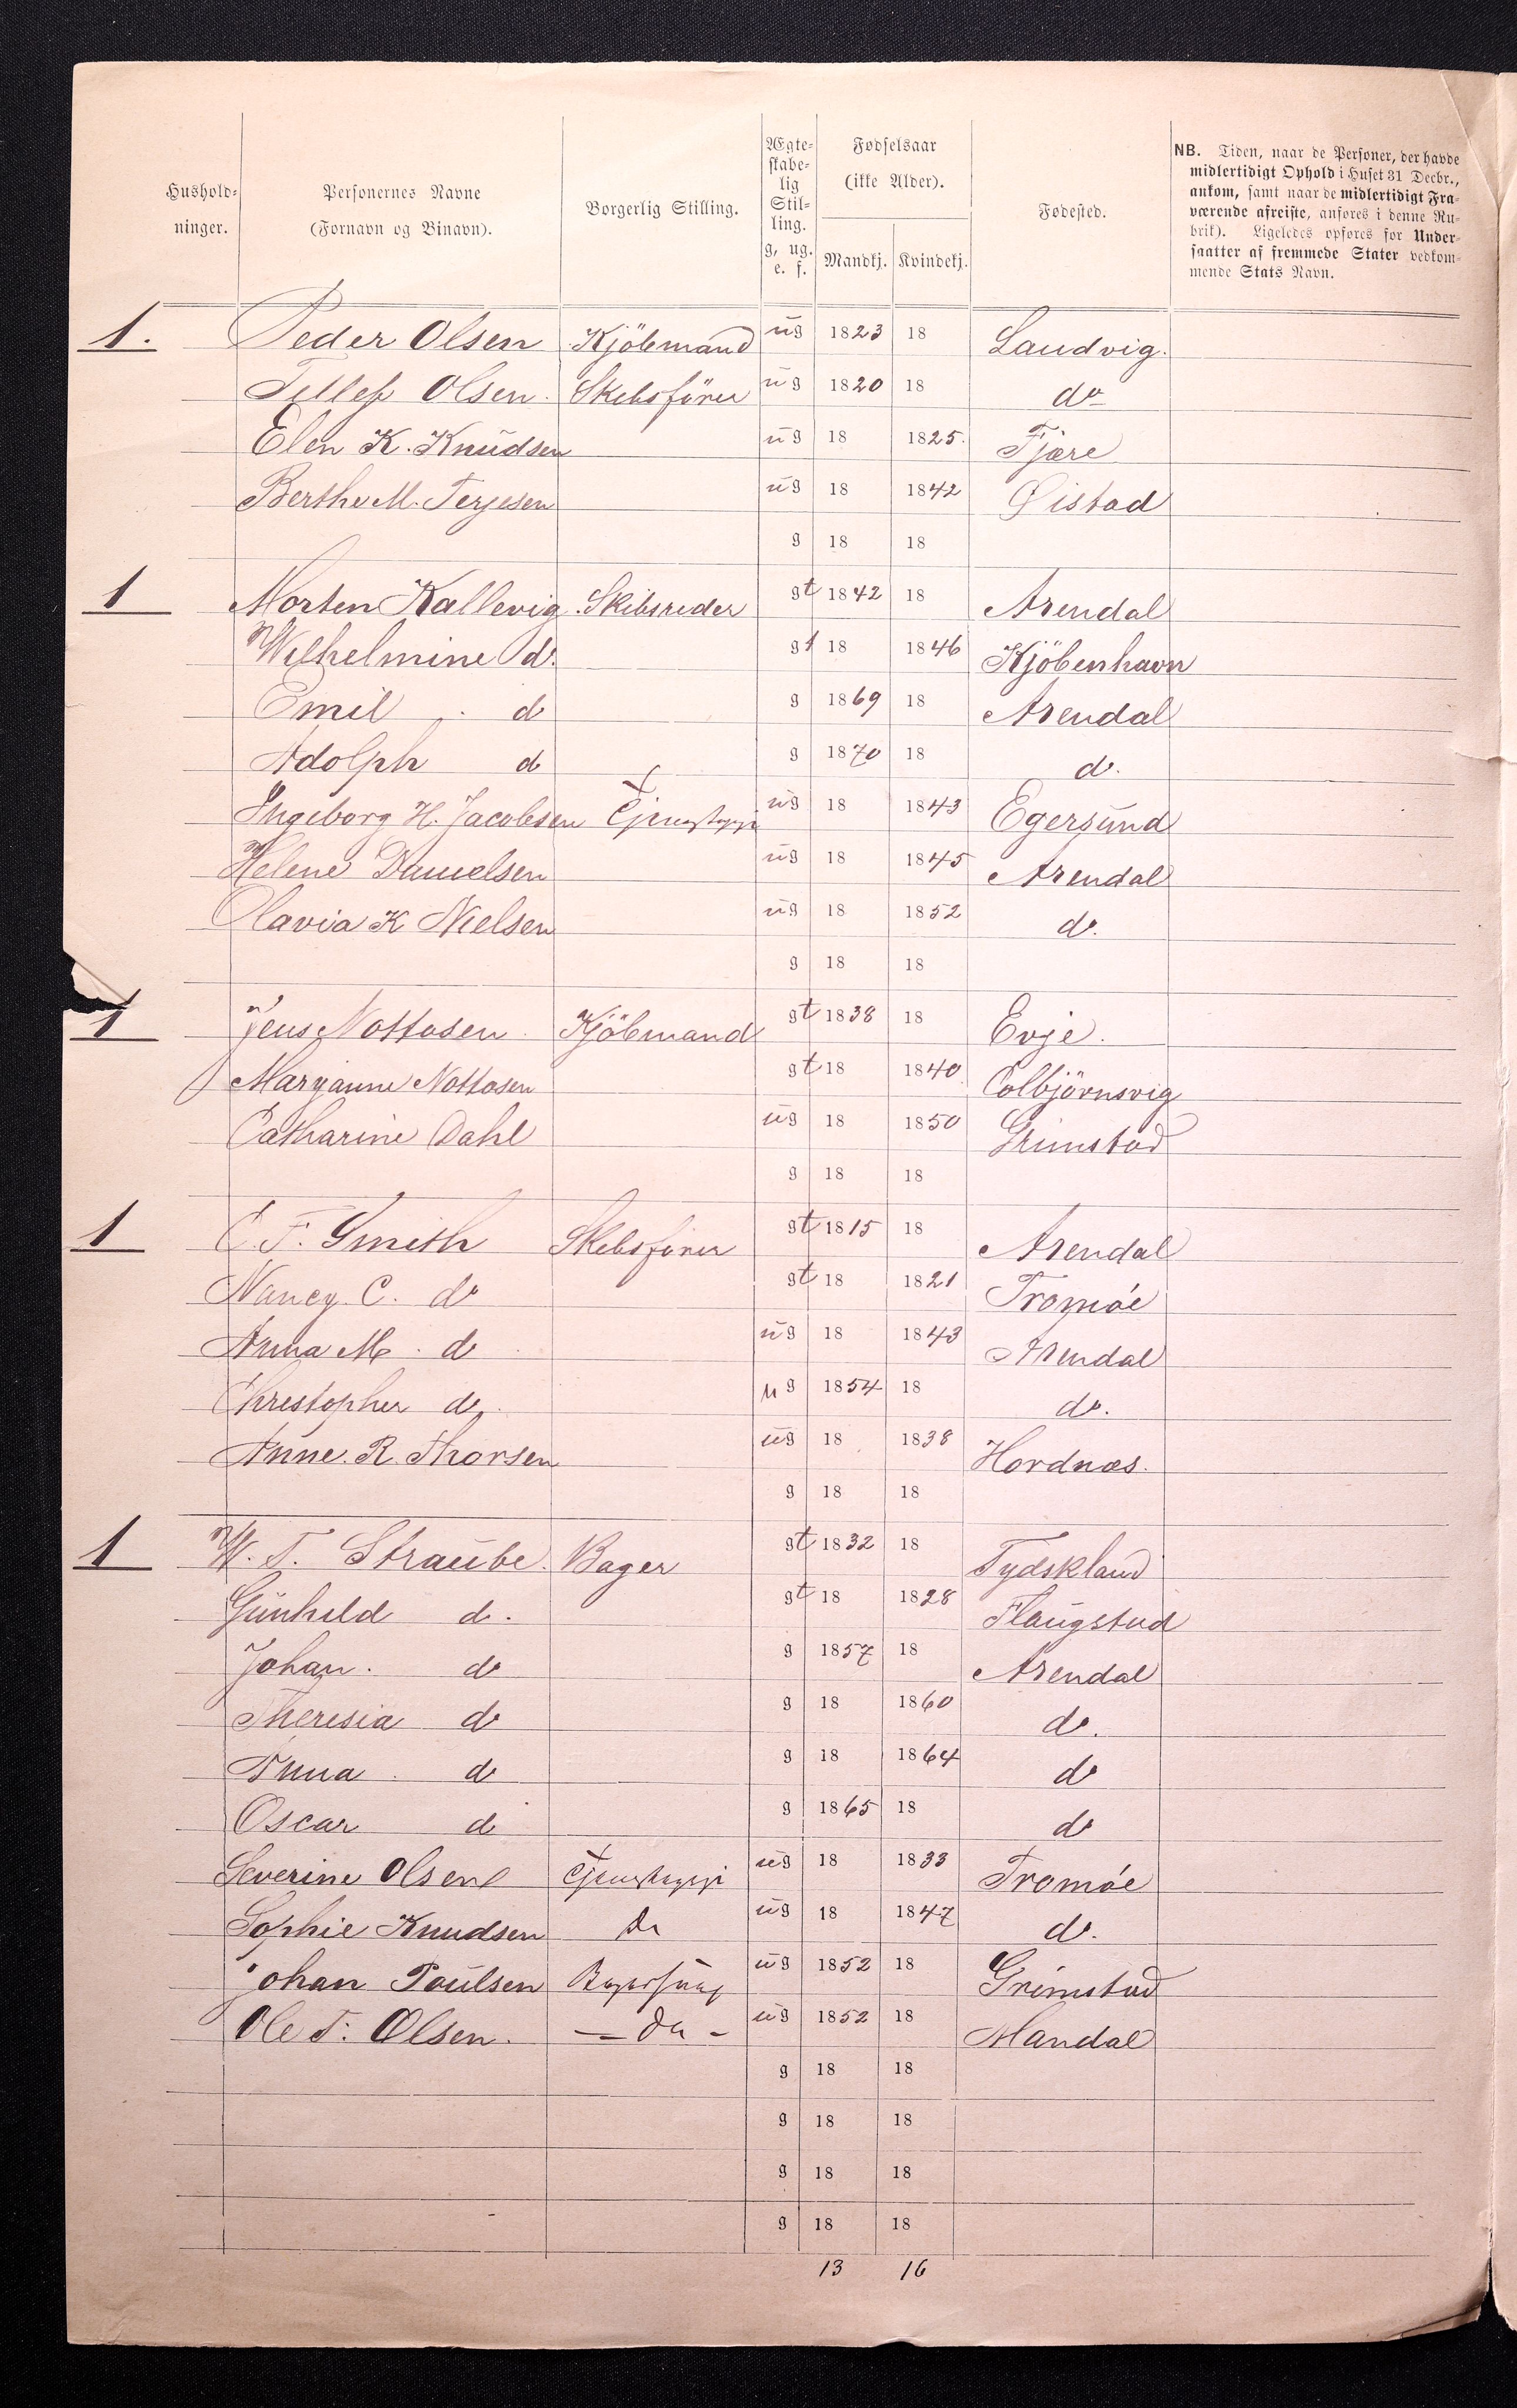 Hushold-
ninger.
Personernes Navne
(Fornavn og Binavn).
Borgerlig Stilling.
Ægte-
skabe-
lig
Stil-
ling.
g, ug.
e. f.
Fødselsaar
(ikke Alder).
Mandkj. Kvindekj.
Fødested.
NB. Tiden, naar de Personer, der havde
midlertidigt Ophold i Huset 31 Decbr.,
ankom, samt naar de midlertidigt Fra-
værende afreiste, anføres i denne Ru-
brik). Ligeledes opføres for Under-
saatter af fremmede Stater vedkom-
mende Stats Navn.
1. Peder Olsen Kjöbmand ug 1823 18 Landvig.
Tellef Olsen. Skibsförer ug 1820 18 do
Elen K. Knudsen ug 18 1825. Fjære
Berthe M. Terjesen ug 18 1842 Øistad
g 18 18
1 Morten Kallevig. Skibsreder gt 1842 18 Arendal
Wilhelmine do. gt 18 1846 Kjöbenhavn
Emil do g 1869 18 Arendal
Adolph do g 1870 18 do.
Ingeborg H. Jacobsen Tjenestepige ug 18 1843 Egersund
Helene Danielsen ug 18 1845 Arendal
Olavia K Nielsen ug 18 1852 do.
g 18 18
1 Jens Nottosen Kjöbmand gt 1838 18 Evje.
Maryanne Nottosen gt 18 1840 Colbjörnsvig
Catharine Dahl ug 18 1850 Grimstad
g 18 18
1 C. F. Smith Skibsförer gt 1815 18 Arendal
Nancy C. do gt 18 1821 Tromöe
Anna M. do ug 18 1843 Arendal
Christopher do ug 1854 18 do.
Anne. R. Thorsen ug 18 1838 Hordnæs.
g 18 18
1 W. T. Straube. Bager gt 1832 18 Tydskland
Gunhild do. gt 18 1828 Flaugstad
Johan. do g 1857 18 Arendal
Theresia do g 18 1860 do.
Anna do g 18 1864 do
Oscar do g 1865 18 do
Severine Olsen Tjenestepige ug 18 1833 Tromöe
Sophie Knudsen do ug 18 1847 do.
Johan Poulsen ug 1852 18 Grimstad
Ole T. Olsen. — do - ug 1852 18 Mandal
g 18 18
g 18 18
g 18 18
g 18 18
13 16